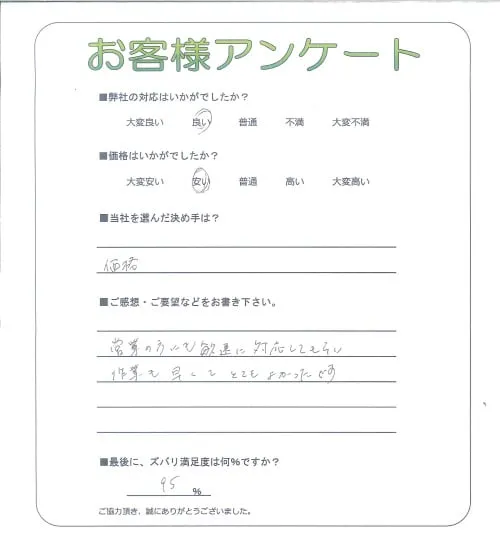 お客様アンケート
■弊社の対応はいかがでしたか？
大変良い 良い 普通 不満 大変不満
■価格はいかがでしたか？
大変安い 安い 普通 高い 大変高い
■当社を選んだ決め手は？
価格
■ご感想・ご要望などをお書き下さい。
営業の方にも敏速に対応してもらい
作業も早くてとてもよかったです
■最後に、ズバリ満足度は何％ですか？
95 %
ご協力頂き、誠にありがとうございました。